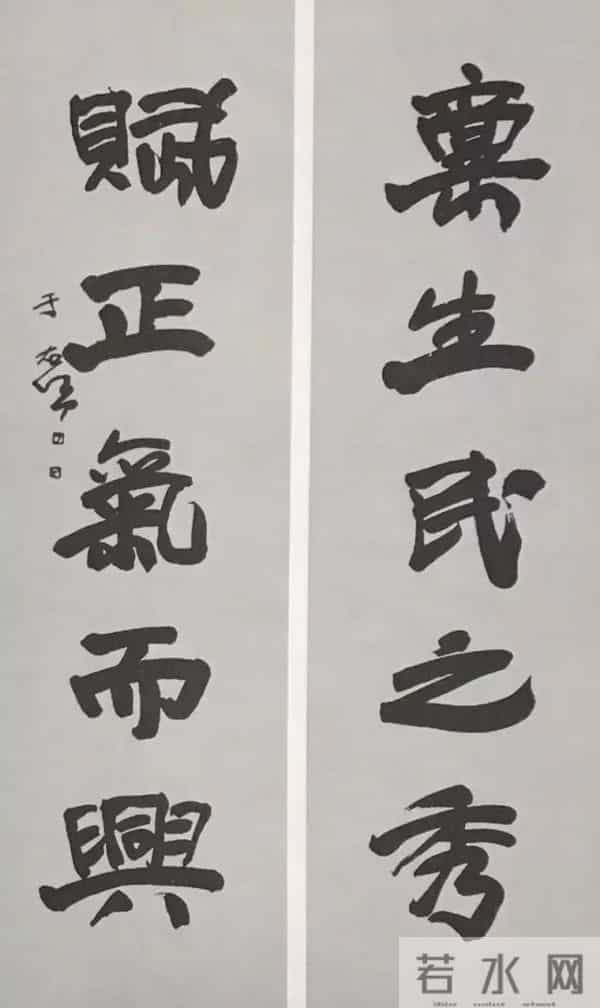 稟生民之秀
賦正氣而興
于右任
若水网